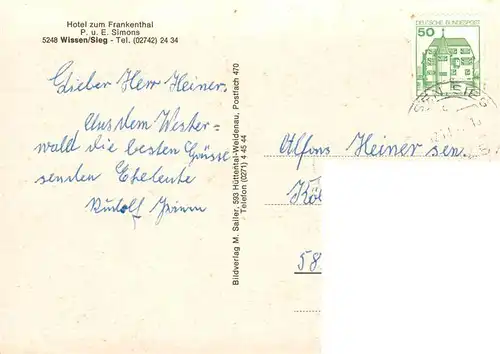 Hotel zum Frankenthal
P. u. E. Simons
5248 Wissen/Sieg - Tel. (02742) 24 34
Lieber Herr Heiner.
Aus dem Wester-
wald die besten Grüsse
senden Eheleute
Rudolf
Bildverlag M. Sailer, 593 Hüttental-Weidenau, Postfach 470
Telefon (0271) 4 45 44
50
DEUTSCHE BUNDESPOST
Alfons Heiner sen.
Köl
58